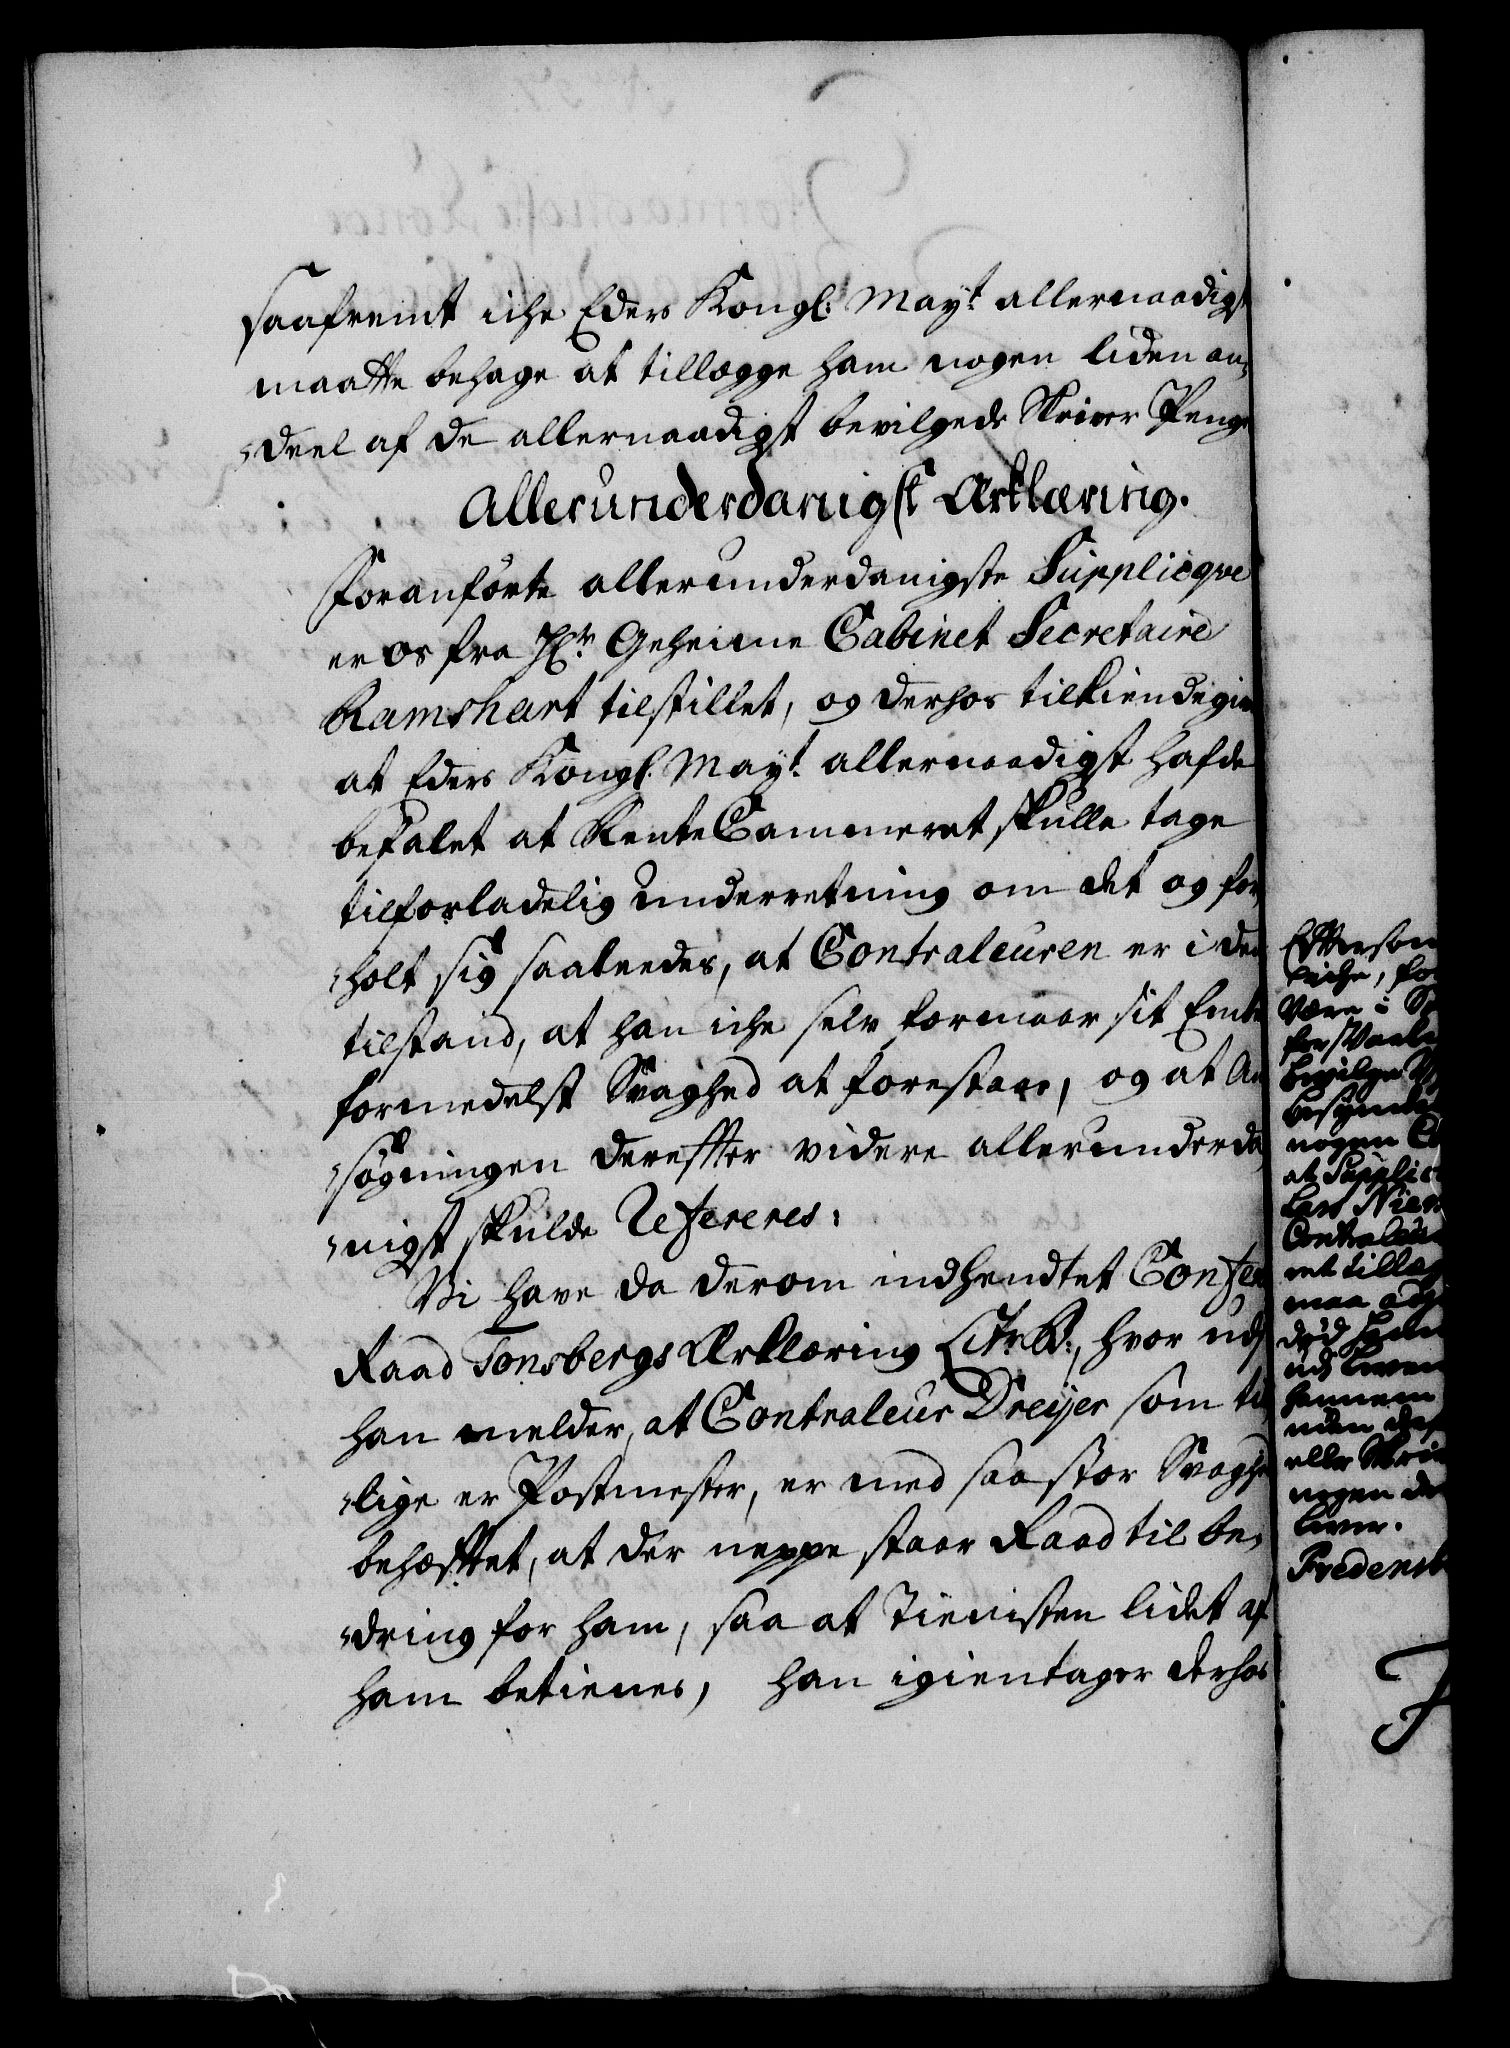 saafremt iche Eders Kongl: Mayt allernaadigst
maatte behage at tillegge ham nogen liden an¬
deel af de allernaadigst bevilgede Skriver Penge
Allerunderdanigst Erklæring.
Foranførte allerunderdanigste Supplicqve
er os fra Hr Geheime Cabinet Secretaire
Ramshart tilstillet, og derhos tilkiendegiv
at Eders Kongl. Mayt allernaadigst hafde
befalet at Rente Cammeret skulle tage
tilforladelig underretning om det og for¬
holt sig saaledes, at Contraleuren er i den
tilstand, at han iche selv formaar sit Embe
formedelst Svaghed at forestaae, og at An
søgningen derefter videre allerunderda¬
nigst skulde Refereres:
Vi have da derom indhendtet Confer
Raad Tonsbergs Erklæring Litr. B:, hvor ud
han melder, at Contraleur Dreyer som til
lige er Postmester, er med saa stor Svaghe
behæftet, at der neppe staar Raad til be¬
dring for ham, saa at Tienisten lidet af
ham betienes, han igientager derhos
Efterson
være i
nogen
at Supplic
Lars Niel
Contraleu
ret tillæg
maa
død ham
hannem
uden
eller Skri
nogen de
Fredensb